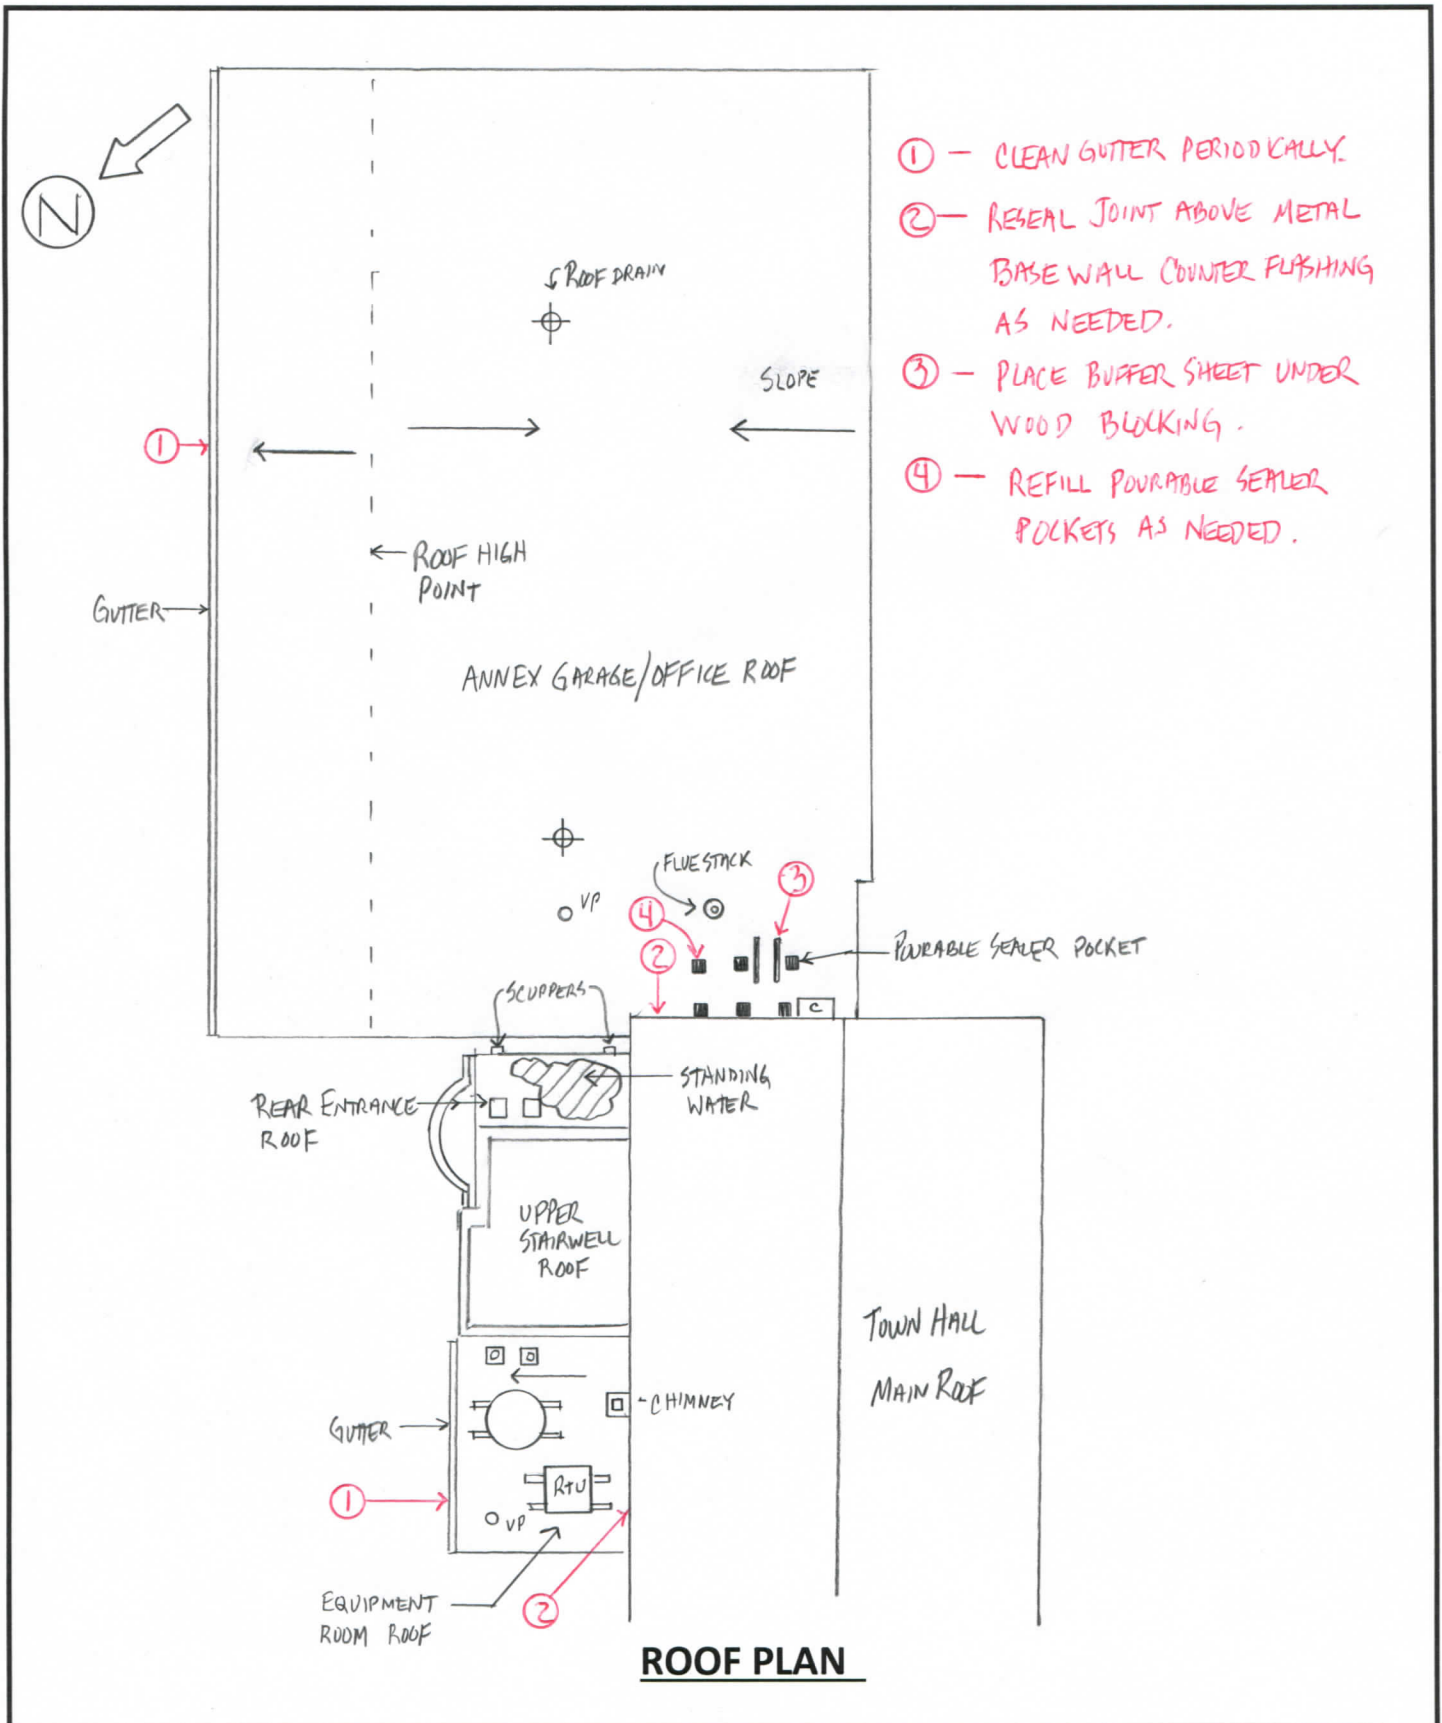 N
① — CLEAN GUTTER PERIODICALLY.
② — RESEAL JOINT ABOVE METAL
BASE WALL COUNTER FLASHING
AS NEEDED.
③ — PLACE BUFFER SHEET UNDER
WOOD BLOCKING.
④ — REFILL POURABLE SEALER
POCKETS AS NEEDED.
ROOF DRAIN
SLOPE
①
ROOF HIGH
POINT
GUTTER
ANNEX GARAGE/OFFICE ROOF
FLUE STACK
③
VP
④
②
POURABLE SEALER POCKET
SCUPPERS
C
STANDING
WATER
REAR ENTRANCE
ROOF
UPPER
STAIRWELL
ROOF
TOWN HALL
MAIN ROOF
CHIMNEY
GUTTER
RTU
①
VP
EQUIPMENT
ROOM ROOF
②
ROOF PLAN